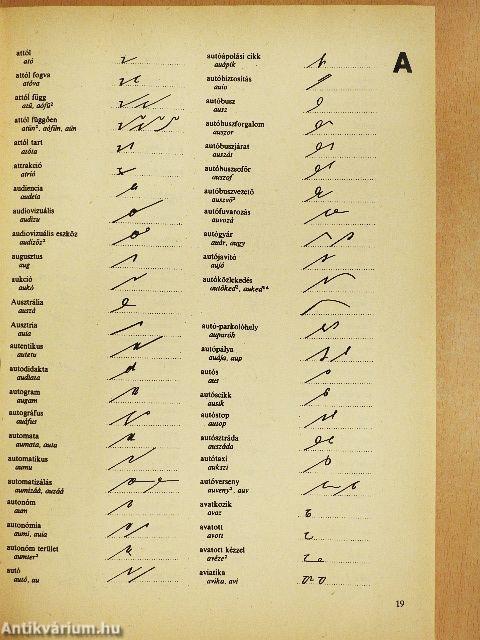 attól
ató
attól fogva
atóva
attól függ
atü, aófü²
attól függően
atün², aófün, atn
attól tart
atóta
attrakció
atrió
audiencia
audeia
audiovizuális
audizu
audiovizuális eszköz
audizöz²
augusztus
aug
aukció
aukó
Ausztrália
auszá
Ausztria
auia
autentikus
autetu
autodidakta
audiata
autogram
augam
autográfus
automata
aumata, auta
automatikus
aumu
automatizálás
aumizáá, auzáá
autonóm
autonómia
autonóm terület
autó
autó, au
autóápolási cikk
autóbiztosítás
auio
autóbusz
ausz
autóbuszforgalom
auszor
autóbuszjárat
auszát
autóbuszsofőr
auszof
autóbuszvezető
auszvő²
autófuvarozás
auvozá
autógyár
auár, augy
autójavító
aujó
autóközlekedés
autóked², auked²⁴
autó-parkolóhely
auparóh
autópálya
auája, aup
autós
aus
autóscikk
ausik
autóstop
autósztráda
auszáda
autótaxi
autóverseny
auveny², auv
avatkozik
avaz
avatott
avott
avatott kézzel
avéze²
aviatika
avika, avi
A
19
Antikvárium.hu